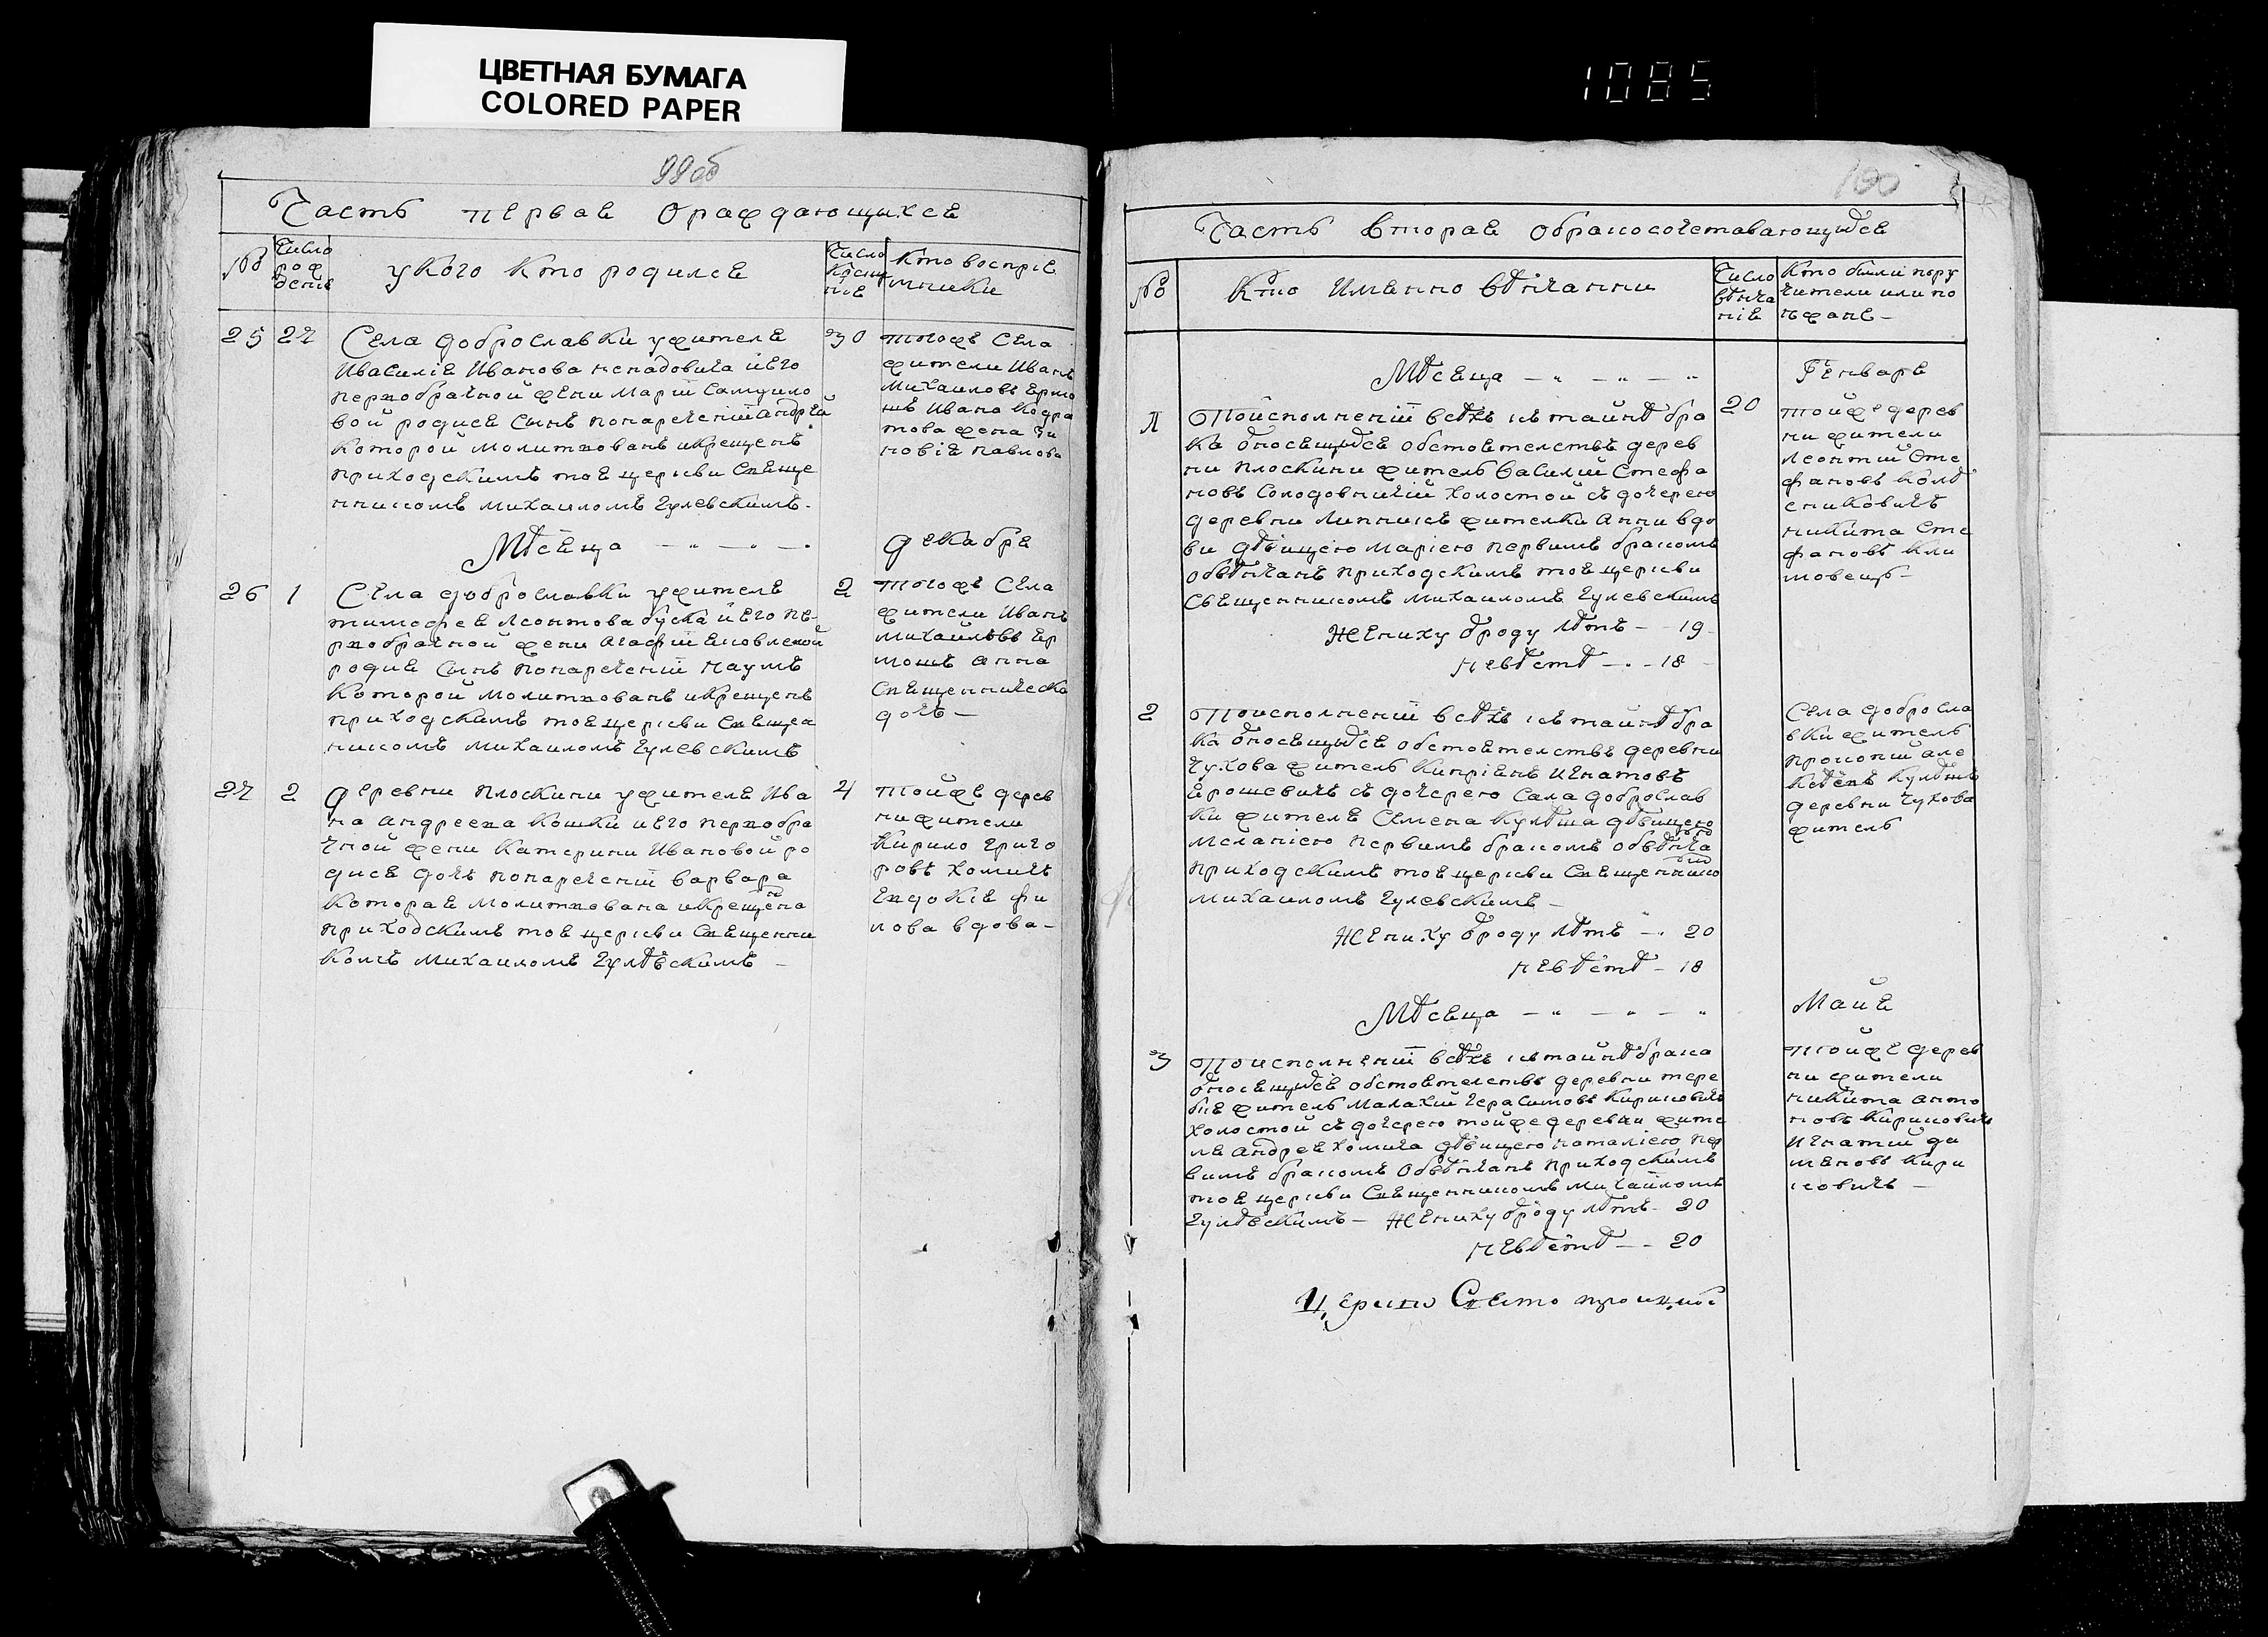 ЦВЕТНАЯ БУМАГА
COLORED PAPER
1085
99об
Часть первая Ораждающихся
№
Число рож дения
укого кто родился
Число Креще ния
Кто воспрїе мники
25 27 30
Села доброславки ужителя
Ивасилїя Иванова ненадовича иего
первобрачной жени Марїи Самуило
вой родися Сынъ нонареченїи андрѣй
которой молитвованъ икрещенъ
приходскимъ тоя церкви Свяще
нникомъ михаиломъ гулевскимъ.
тогожъ Села
жители Иванъ
Михаиловъ Ермо
шъ Ивана Кодра
това жена Зи
новїя павлова
Мѣсяца Декабря
26 1 2
Села доброславки ужителя
тимофея леонтова буска иего пе
рвобрачной жени агафїи яковлевой
родися Сынъ нонареченїи наумъ
Которой молитвованъ икрещенъ
приходскимъ тоя церкви Свящеа
никомъ михаиломъ гулевскимъ
тогожъ Села
жители Иванъ
михаиловъ ер
мошъ анна
Священническа
дочъ —
27 2 4
Деревни плоскини ужителя Ива
на андреева кошки иего первобра
чной жени Катерини Ивановой ро
дися дочъ нонареченїи варвара
Которая молитвована икрещена
приходскимъ тоя церкви Священни
комъ михаиломъ гулѣвскимъ —
тойже дерев
ни жители
Кирило григо
ровъ хомичъ
Евдокїя фи
лова вдова —
100
Часть вторая обракосочетавающидся
№
Кто Именно вѣнчанни
Число вѣнча нїя
Кто были пору чители или по
Мѣсяца Генваря
1 20
Поисполненїи всѣхъ кътайнѣ бра
ка ѿносящидся обстоятелствъ дерев
ни плоскини житель василїи Стефа
новъ Солодовничїй холостой съ дочерею
деревни липникъ жителки анни вдо
ви дѣвицею марїею первимъ бракомъ
обвѣнчанъ приходскимъ тоя церкви
Священникомъ михаиломъ гулевскимъ
Жениху ѿроду лѣтъ — 19
невѣстѣ — 18
тойже дерев
ни жители
леонтїй Сте
фановъ Колѣ
сниковичъ
никита Сте
фановъ Кли
мовецъ —
2
Поисполненїи всѣхъ кътайнѣ бра
ка ѿносящидся обстоятелствъ деревни
чухова житель Кипрїянъ игнатовъ
ярошевичъ съ дочерею Села доброслав
ки жителя Семена кулѣша дѣвицею
меланїею первимъ бракомъ обвѣнча
приходскимъ тоя церкви Священнико
михаиломъ гулевскимъ —
Жениху ѿроду лѣтъ — 20
невѣстѣ — 18
Села добросла
вки житель
прокопїй але
Кѣевъ Кулѣшъ
деревни чухова
житель
Мѣсяца Майя
3
Поисполненїи всѣхъ кътайнѣ брака
ѿносящидся обстоятелствъ деревни тере
бня житель малахїй герасимовъ кириковичъ
холостой съ дочерею тойже деревни жите
ля андрея хомича дѣвицею наталїею пер
вимъ бракомъ обвѣнчанъ приходскимъ
тоя церкви Священникомъ михаиломъ
гулѣвскимъ — Жениху ѿроду лѣтъ — 20
невѣстѣ — 20
тойже дерев
ни жители
никита анто
новъ Кириковичъ
Игнатїй де
мяновъ Кири
ковичъ —
Церкви Свято троицкой